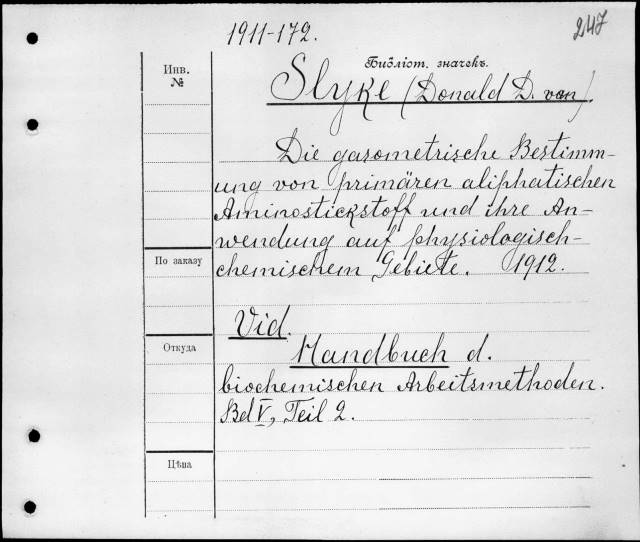 1911-172.
247
Инв.
№
Библіот. значекъ.
Slyke (Donald D. van)
Die gasometrische Bestimm-
ung von primären aliphatischen
Aminostickstoff und ihre An-
wendung auf physiologisch-
chemischem Gebiete. 1912.
По заказу
Vid.
Откуда
Handbuch d.
biochemischen Arbeitsmethoden.
Bd V, Teil 2.
Цѣна